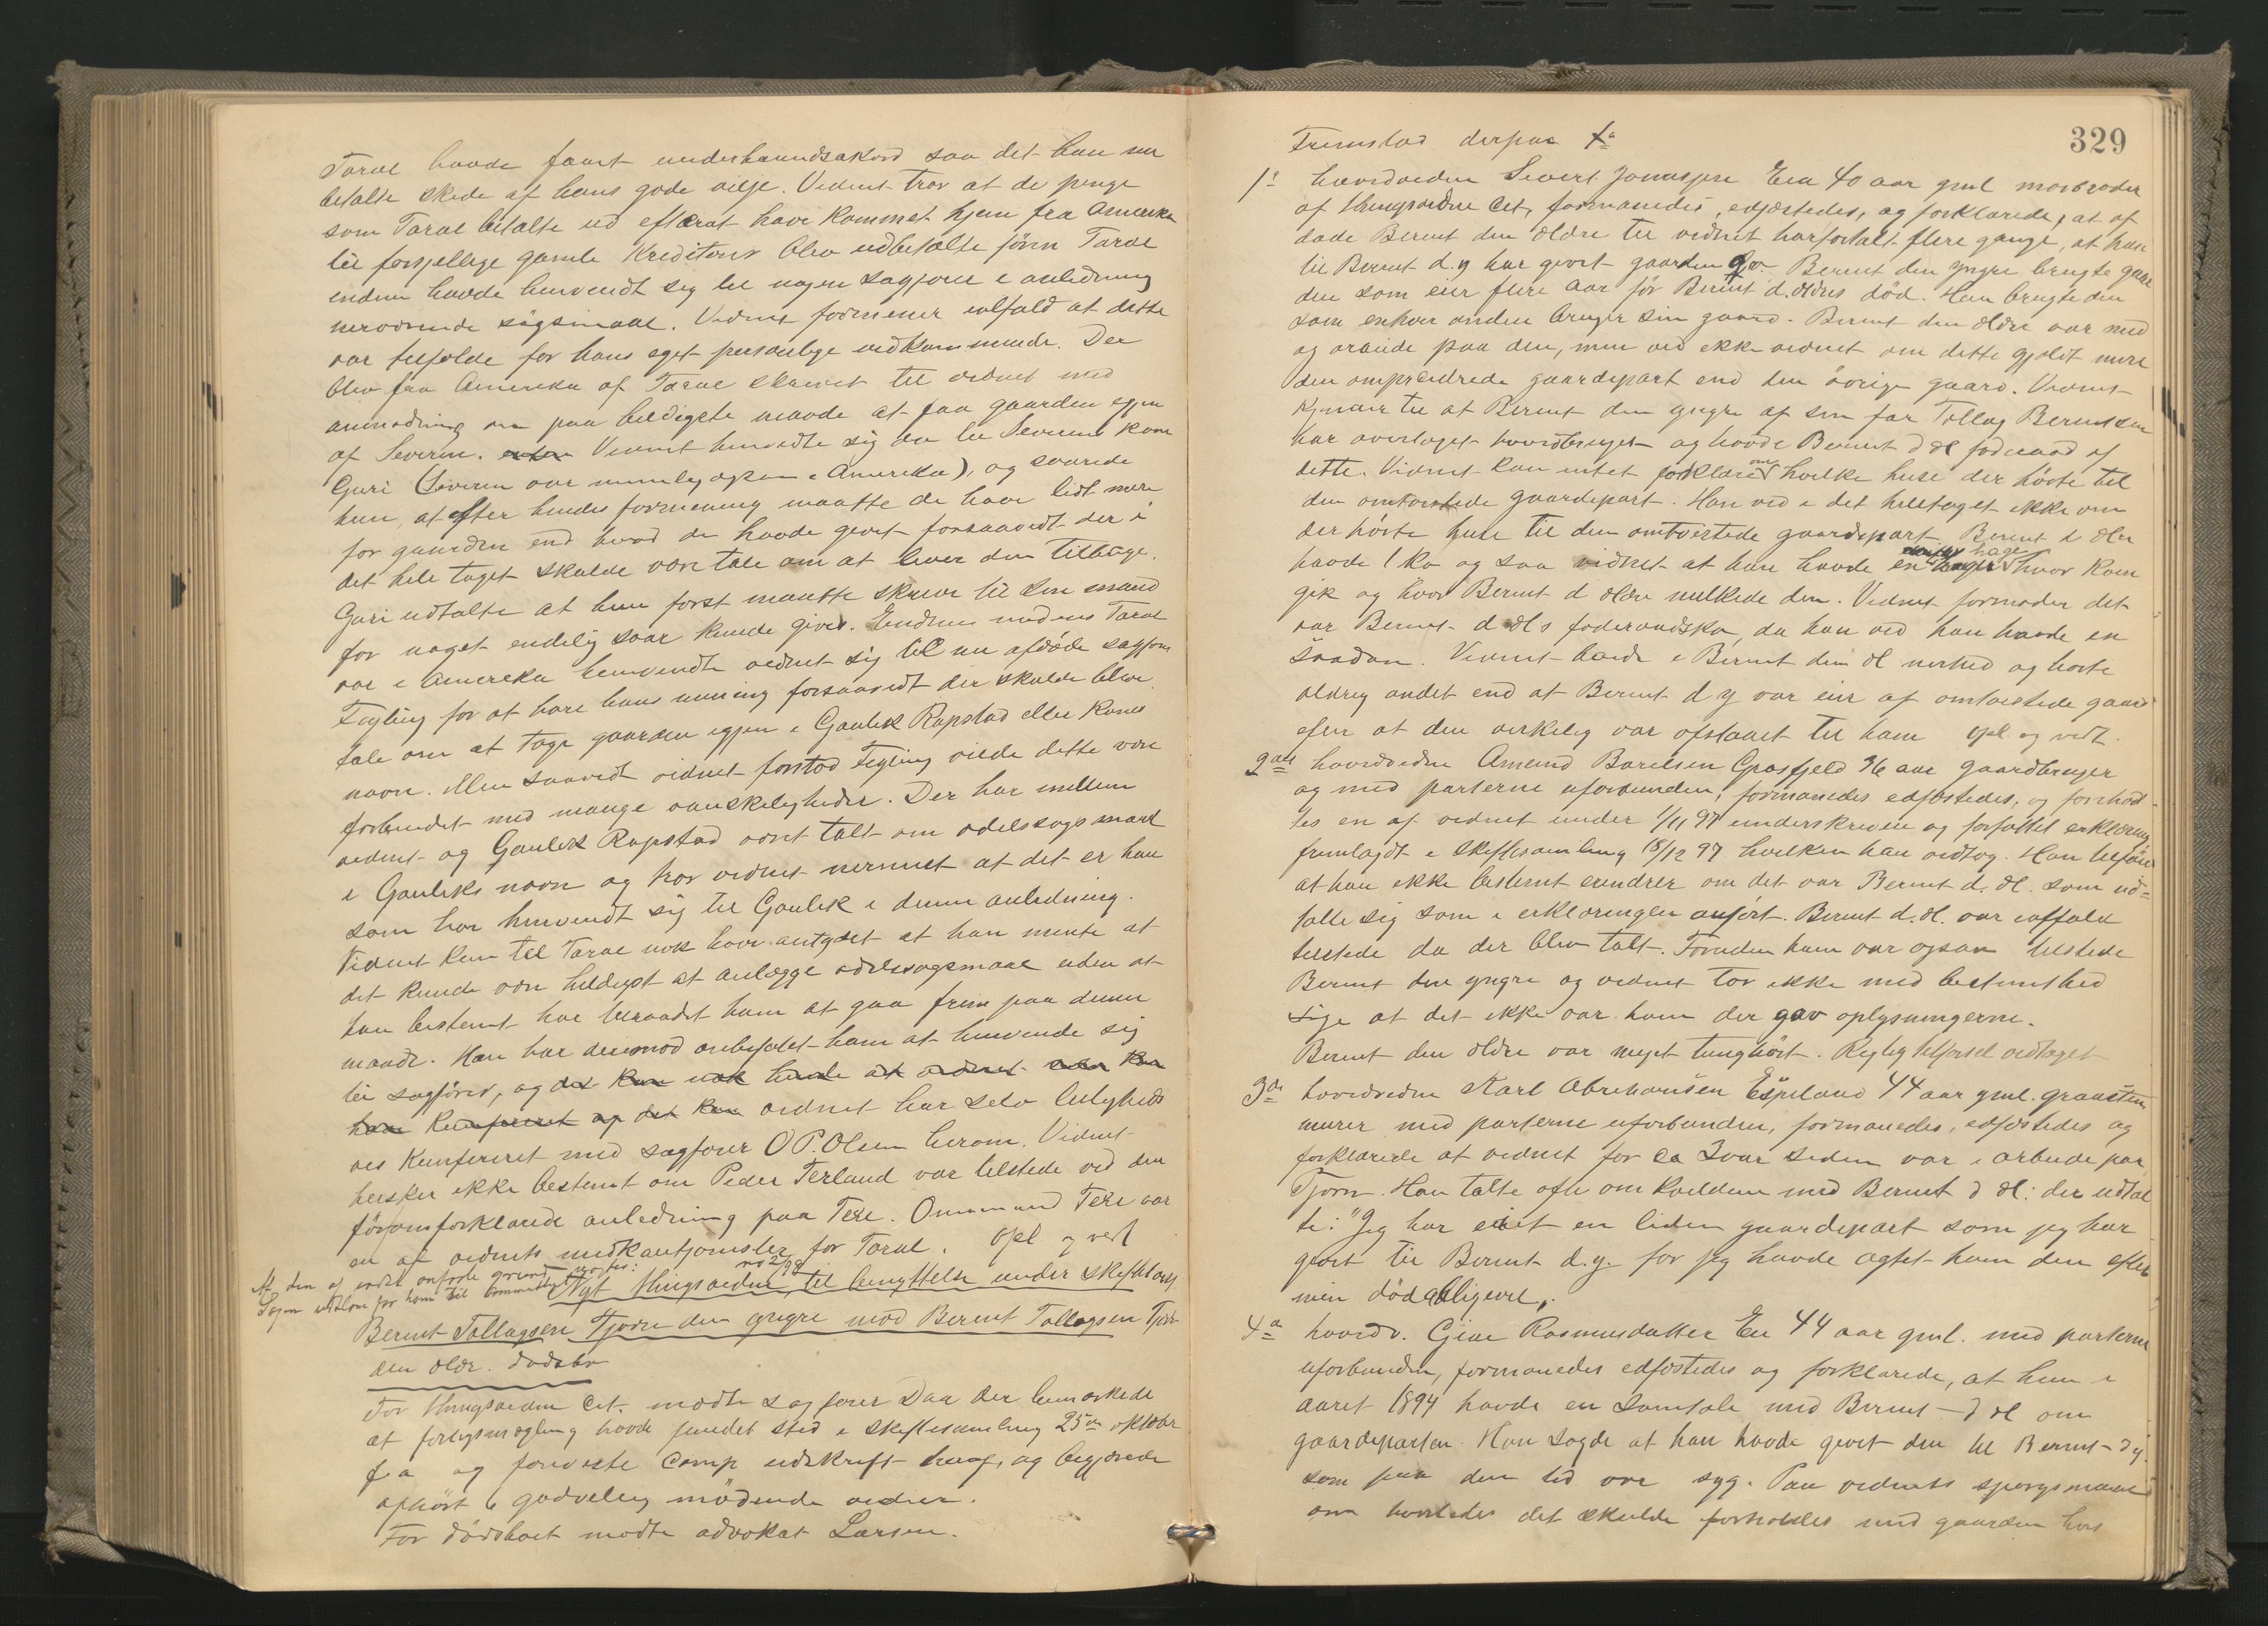 Taral havde faaet underhaandsakord saa det han nu
betalte skede af hans gode vilje. Vidnet tror at de penge
som Taral betalte ud efterat have kommet hjem fra Amerika
til forsjellige gamle Kreditorer blev udbetalte förin Taral
endnu havde henvendt sig til nogen sagförer i anledning
nerværende sögsmaal. Vidnet formener ialfald at dette
var tilfælde for hans eget personlige vedkommende. Der
blev fra Amerika af Taral skrevet til vidnet med
anmodning om paa bildigste maade at faa gaarden igjen
af Severin. Vidnet henvendte sig da til Severins kone
Guri (Severin var nemlig ogsaa i Amerika), og svarede
hun, at efter hendes formening maatte de have lidt mere
for gaarden end hvad de havde givet forsaavidt der i
det hele taget skulde være tale om at lever den tilbage.
Guri udtalte at hun först maatte skrive til sin mand
for noget endelig svar kunde gives. Endnu medens Taral
var i Amerika henvendte vidnet sig til nu afdöde sagförer
Fayling for at höre hans mening forsaavidt der skulde blive
tale om at tage gaarden igjen i Gaulik Rapstad eller kones
navn. Men saavidt vidnet forstod Fayling vilde dette være
forbundet med mange vanskeligheder. Der har mellem
vidnet og Gaulik Rapstad været talt om odelssögsmaal
i Gauliks navn og tror vidnet nermest at det er han
som har henvendt sig til Gaulik i denne anledning.
Vidnet kan til Taral nok have antydet at han mente at
det kunde være heldigst at anlægge odelssögsmaal uden at
han bestemt har tilraadet ham at gaa frem paa denne
maade. Han har derimod anbefalet ham at henvende sig
til sagförer, og det kan nok hende at vidnet
have konfereret og det kan vidnet har selv leilighedsvis
konfereret med sagförer O P. Olsen herom. Vidnet
husker ikke bestemt om Peder Terland var tilstede ved den
föromforklarede anledning paa Teie. Ommund Teie var
en af vidnets medkautionister for Taral. Opl og vedt
Af den af vidnet anförte grund
Nyt thingsvidne no 2/98 til benyttelse under skiftet
Berent Tollagsen Tjörn den yngre mod Berent Tollagsen Tjörn
den ældr. dödsbo
For thingsvidne Cit. mödte sagförer Daa der bemerkede
at forligsmægling havde fundet sted i skiftesamling 25de oktober
f. a og foreviste Comp udskrift heraf, og begjærede
afhört 6 godvillig mödende vidner.
For dödsboet mödte advokat Larsen.
329
Fremstod derpaa
1ste hovedvidne Sivert Jonassen Eia 40 aar gml morbroder
af thingsvidne Cit, formanedes, edfæstedes, og forklarede, at af
döde Berent den ældre til vidnet har fortalt flere gange, at han
til Berent d. y har givet gaarden Berent den yngre brugte gaar
den som eier flere aar för Berent d. ældres död. Han brugte den
som enhver anden bruger sin gaard. Berent den ældre var med
og arbeide paa den, men ved ikke vidnet om dette gjaldt mere
den omprocederede gaardepart end den övrige gaard. Vidnet
kjender til at Berent den yngre af sin far Tollag Berentsen
har overtaget hovedbruget og havde Berent d æl föderaad af
dette. Vidnet kan intet forklare om hvilke huse der hörte til
den omtvistede gaardepart. Han ved i det heletaget ikke om
der hörte huse til den omtvistede gaardepart. Berent d ældre
havde 1 ko og saa vidnet at han havde en hage hvor koen
gik og hvor Berent d ældre melkede den. Vidnet formoder det
var Berent d æl's föderaadsko, da han ved han havde en
saadan. Vidnet havde i Berent den æl nerhed og hörte
aldrig andet end at Berent d y var eier af omtvistede gaard
efter at den virkelig var afstaaet til ham opl. og vedt.
2det hovedvidne Amund Bårdsen Grosfjeld 36 aar gaardbruger
og med parterne uforbunden, formanedes edfæstedes, og forehold-
tes en af vidnet under 1/11 97 underskreven og forfattet erklæring
fremlagdt i skiftesamling 18/12 97 hvilken han vedtog. Han tilföiede
at han ikke bestemt erindrer om det var Berent d. æl. som ud-
talte sig som i erklæringen anfört. Berent d. æl. var ialfald
tilstede da der blev talt. Foruden ham var ogsaa tilstede
Berent den yngre og vidnet tör ikke med bestemthed
sige at det ikke var ham der gav oplysningerne.
Berent den ældre var meget tunghört. Rigtig tilförsel vedtaget
3die hovedvidne Karl Abrahamsen Espeland 44 aar gml. graasten
murer med parterne uforbunden, formanedes, edfæstedes og
forklarede at vidnet for ca 3 aar siden var i arbeide paa
Tjörn. Han talte ofte om kvelden med Berent d æl: der udtal
te: "Jeg har eiet en liden gaardepart som jeg har
givet til Berent d. y. for jeg havde agtet ham den efter
min död alligevel".
4de hovedv. Gine Rasmusdatter Eie 44 aar gml. med parterne
uforbunden, formanedes edfæstedes og forklarede, at hun i
aaret 1894 havde en samtale med Berent d æl om
gaardeparten. Han sagde at han havde givet den til Berent d y.
som paa den tid var syg. Paa vidnets spörgsmaal
om hvorledes det skulde forholdes med gaarden hvis